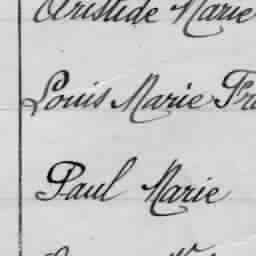 Aristide Marie
Louis Marie Fra
Paul Marie